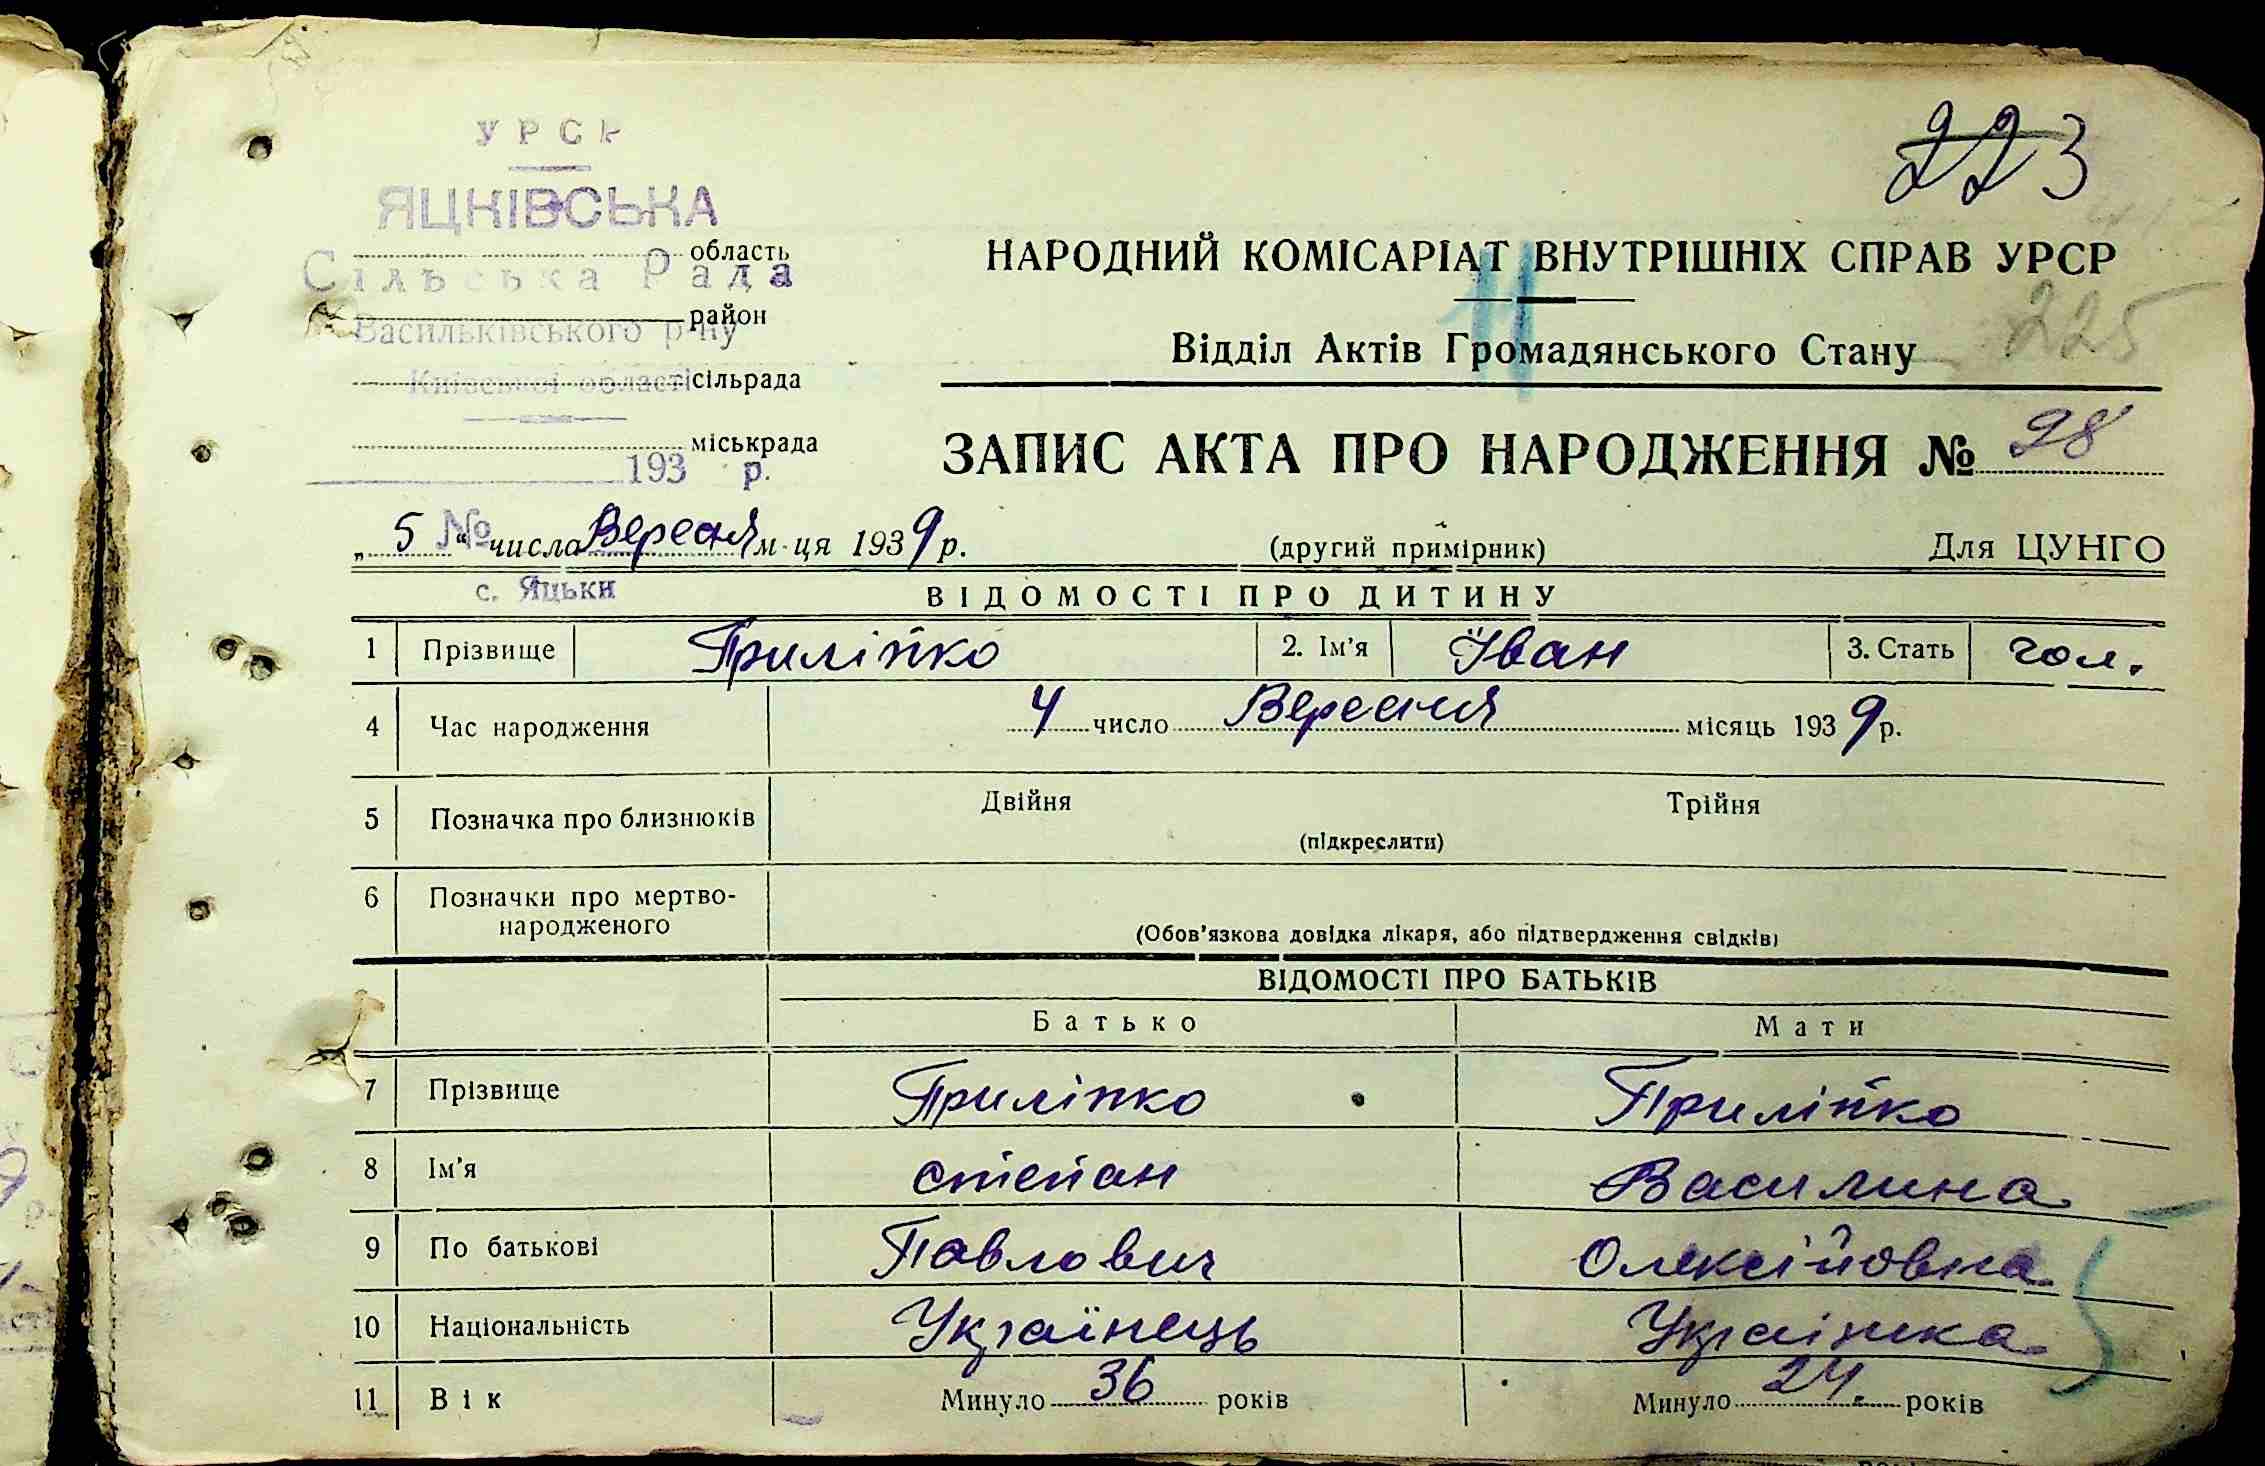 223
УРСР
ЯЦКІВСЬКА
область
Сільська Рада
район
Васильківського р-ну
Київської області сільрада
міськрада
193 р.
№
с. Яцьки
НАРОДНИЙ КОМІСАРІАТ ВНУТРІШНІХ СПРАВ УРСР
11
225
Відділ Актів Громадянського Стану
ЗАПИС АКТА ПРО НАРОДЖЕННЯ № 98
„ 5 “ числа Вересня м-ця 1939 р. (другий примірник) Для ЦУНГО
ВІДОМОСТІ ПРО ДИТИНУ
1 Прізвище Приліпко 2. Ім'я Іван 3. Стать чол.
4 Час народження 4 число Вересня місяць 1939 р.
5 Позначка про близнюків Двійня Трійня
(підкреслити)
6 Позначки про мертво-
народженого
(Обов'язкова довідка лікаря, або підтвердження свідків)
ВІДОМОСТІ ПРО БАТЬКІВ
Батько Мати
7 Прізвище Приліпко Приліпко
8 Ім'я степан Василина
9 По батькові Павлович Олексійовна
10 Національність Українець Українка
11 Вік Минуло 36 років Минуло 24. років